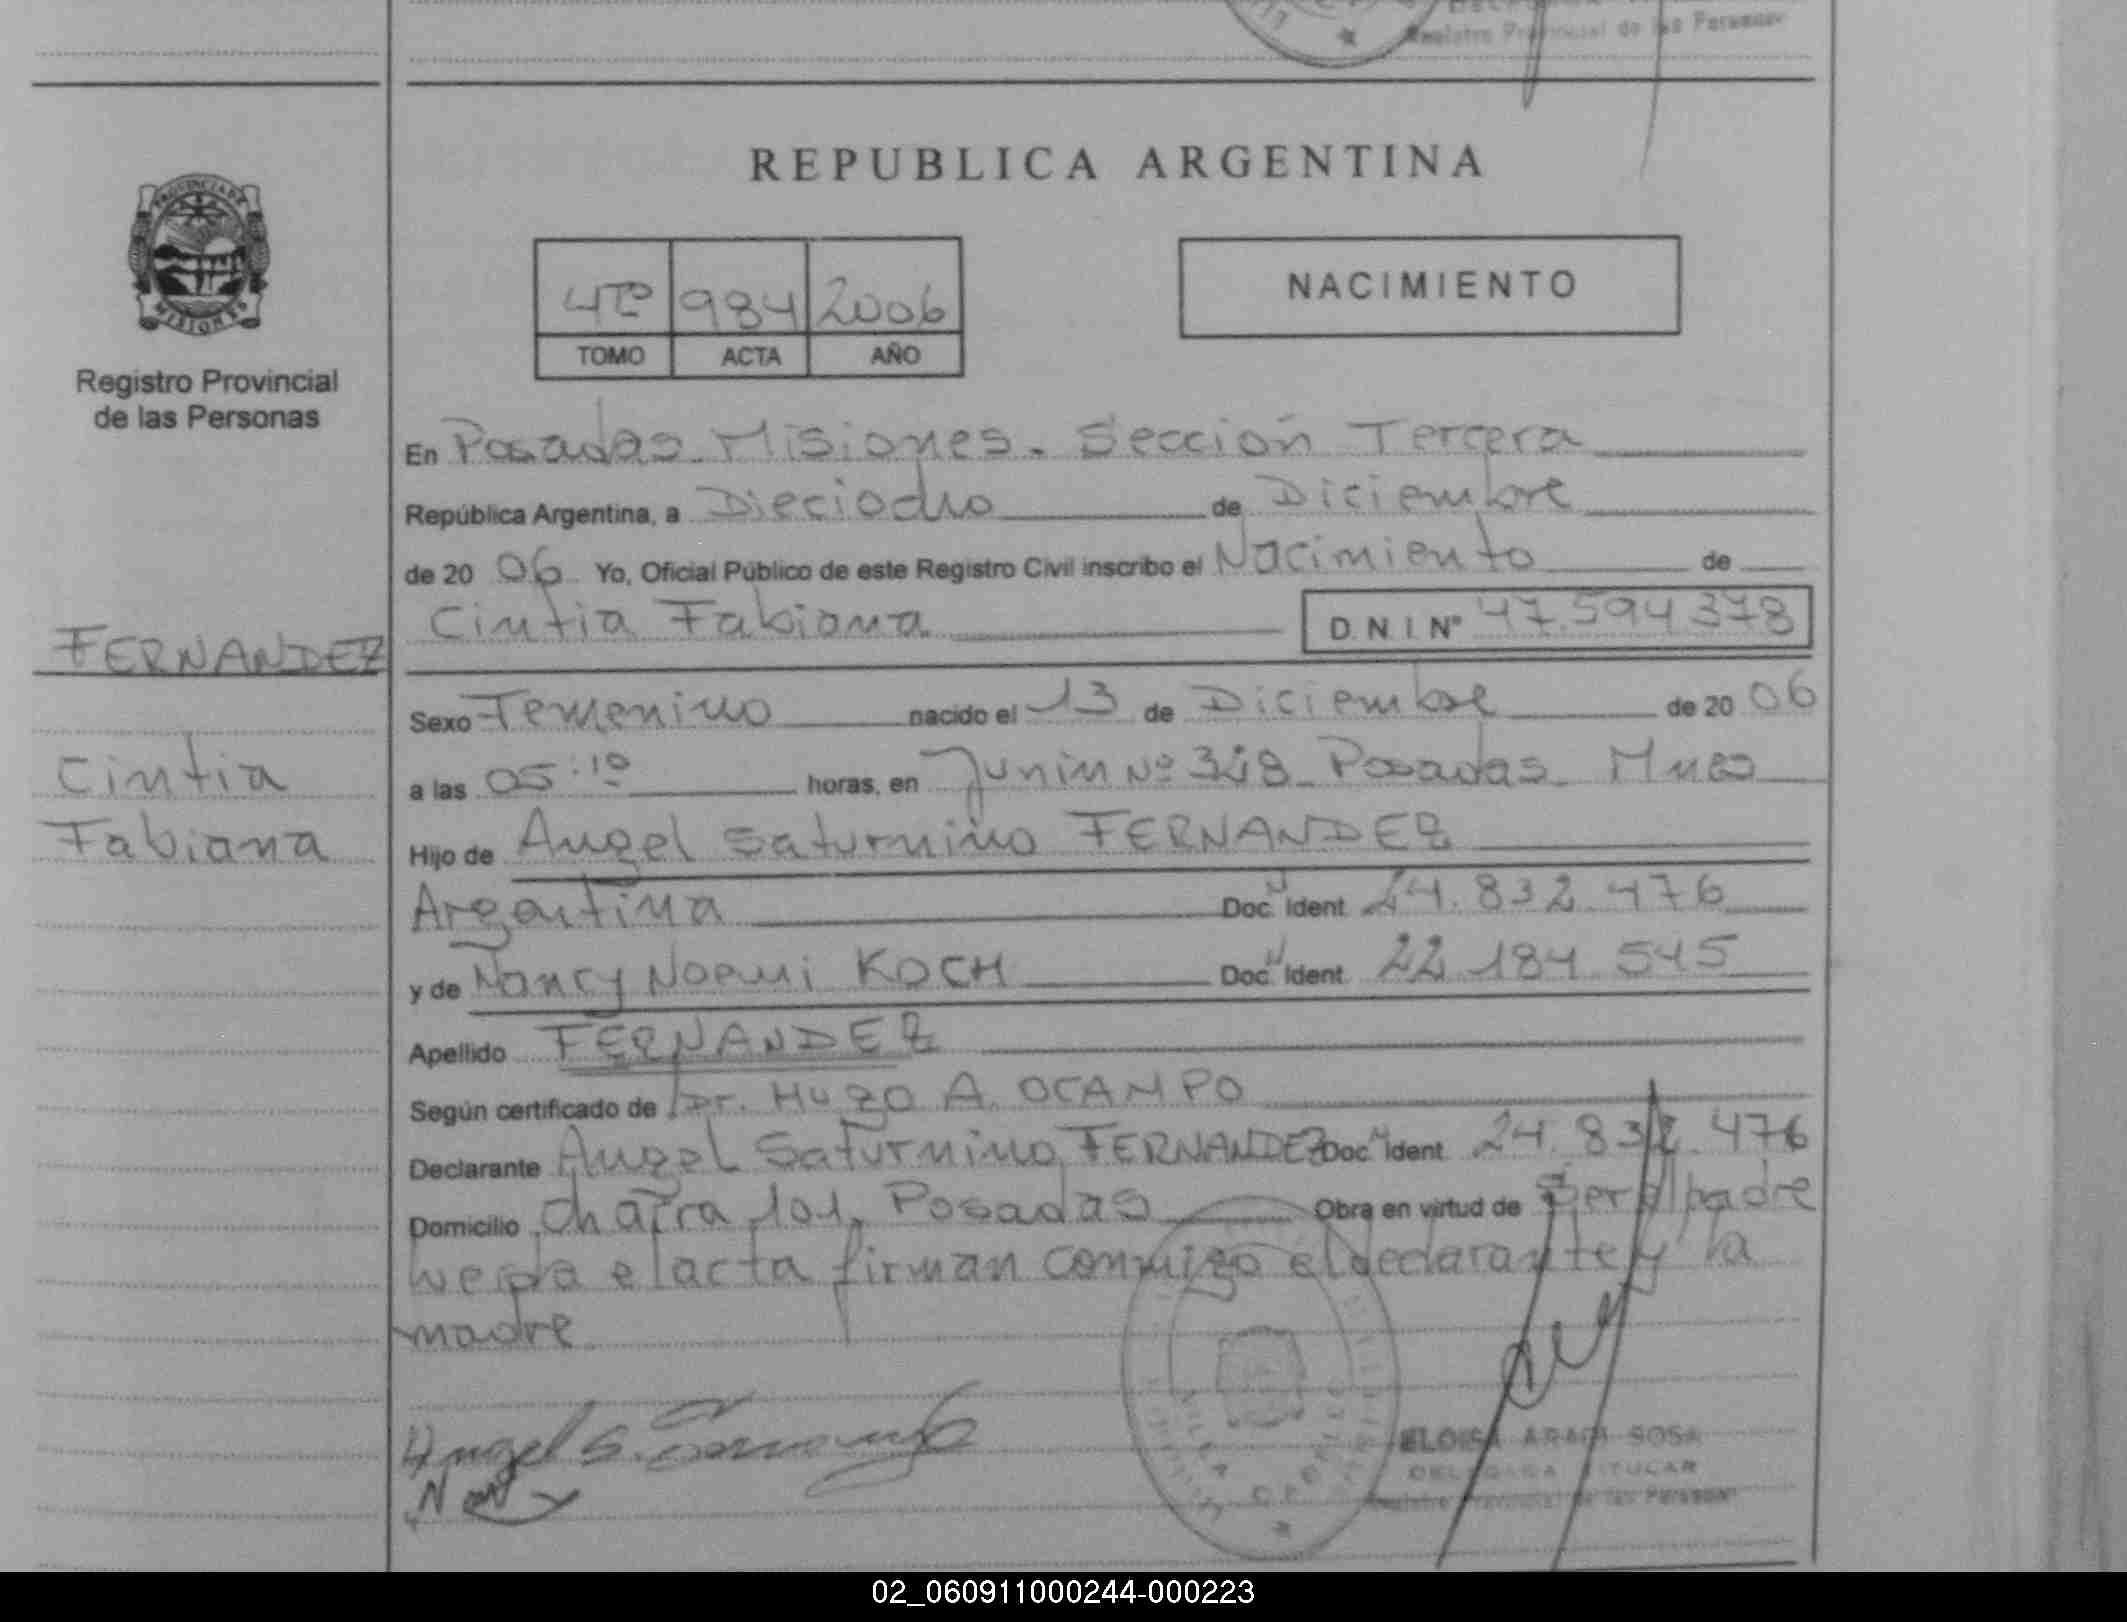 Registro Provincial de las Personas
REPUBLICA ARGENTINA
PROVINCIA DE
MISIONES
Registro Provincial
de las Personas
4to 984 2006
TOMO ACTA AÑO
NACIMIENTO
En Posadas - Misiones - Sección Tercera
República Argentina, a Dieciocho de Diciembre
de 20 06 Yo, Oficial Público de este Registro Civil inscribo el Nacimiento de
Cintia Fabiana D.N.I. Nº 47.594.378
FERNANDEZ
Cintia
Fabiana
Sexo Femenino nacido el 13 de Diciembre de 20 06
a las 05:10 horas, en Junin Nº 348 - Posadas - Mnes
Hijo de Angel Saturnino FERNANDEZ
Argentina Doc. Ident. 24.832.476
y de Nancy Noemi KOCH Doc. Ident. 22.184.545
Apellido FERNANDEZ
Según certificado de Dr. Hugo A. OCAMPO
Declarante Angel Saturnino FERNANDEZ Doc. Ident. 24.832.476
Domicilio Chacra 101, Posadas Obra en virtud de ser el padre
leida el acta firman conmigo el declarante y la
madre
Angel S.
Nancy
ELOISA ARACI SOSA
DELEGADA TITULAR
Registro Provincial de las Personas
02_060911000244-000223